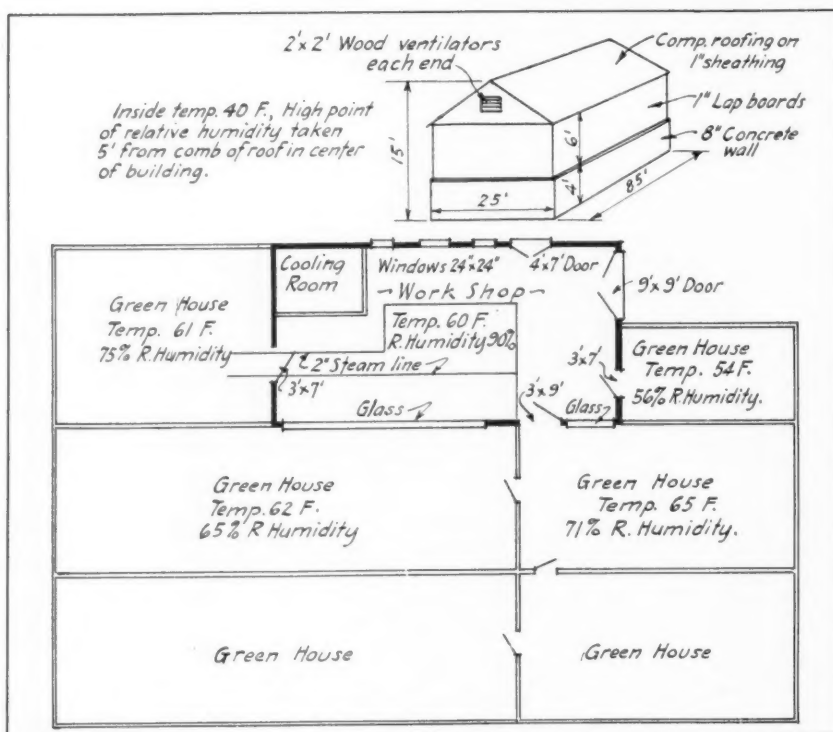 2'x 2' Wood ventilators
each end
Comp. roofing on
1" sheathing
1" Lap boards
8" Concrete
wall
Inside temp. 40 F., High point
of relative humidity taken
5' from comb of roof in center
of building.
15'
6'
4'
25'
85'
Cooling
Room
Windows 24"x 24"
4'x7' Door
9'x 9' Door
~Work Shop~
Green House
Temp. 61 F.
75% R. Humidity
Temp. 60 F.
R. Humidity 90%
2" Steam line
3'x7'
Glass
3'x9'
Glass
3'x7'
Green House
Temp. 54 F.
56% R. Humidity.
Green House
Temp. 62 F.
65% R. Humidity
Green House
Temp. 65 F.
71% R. Humidity.
Green House
Green House